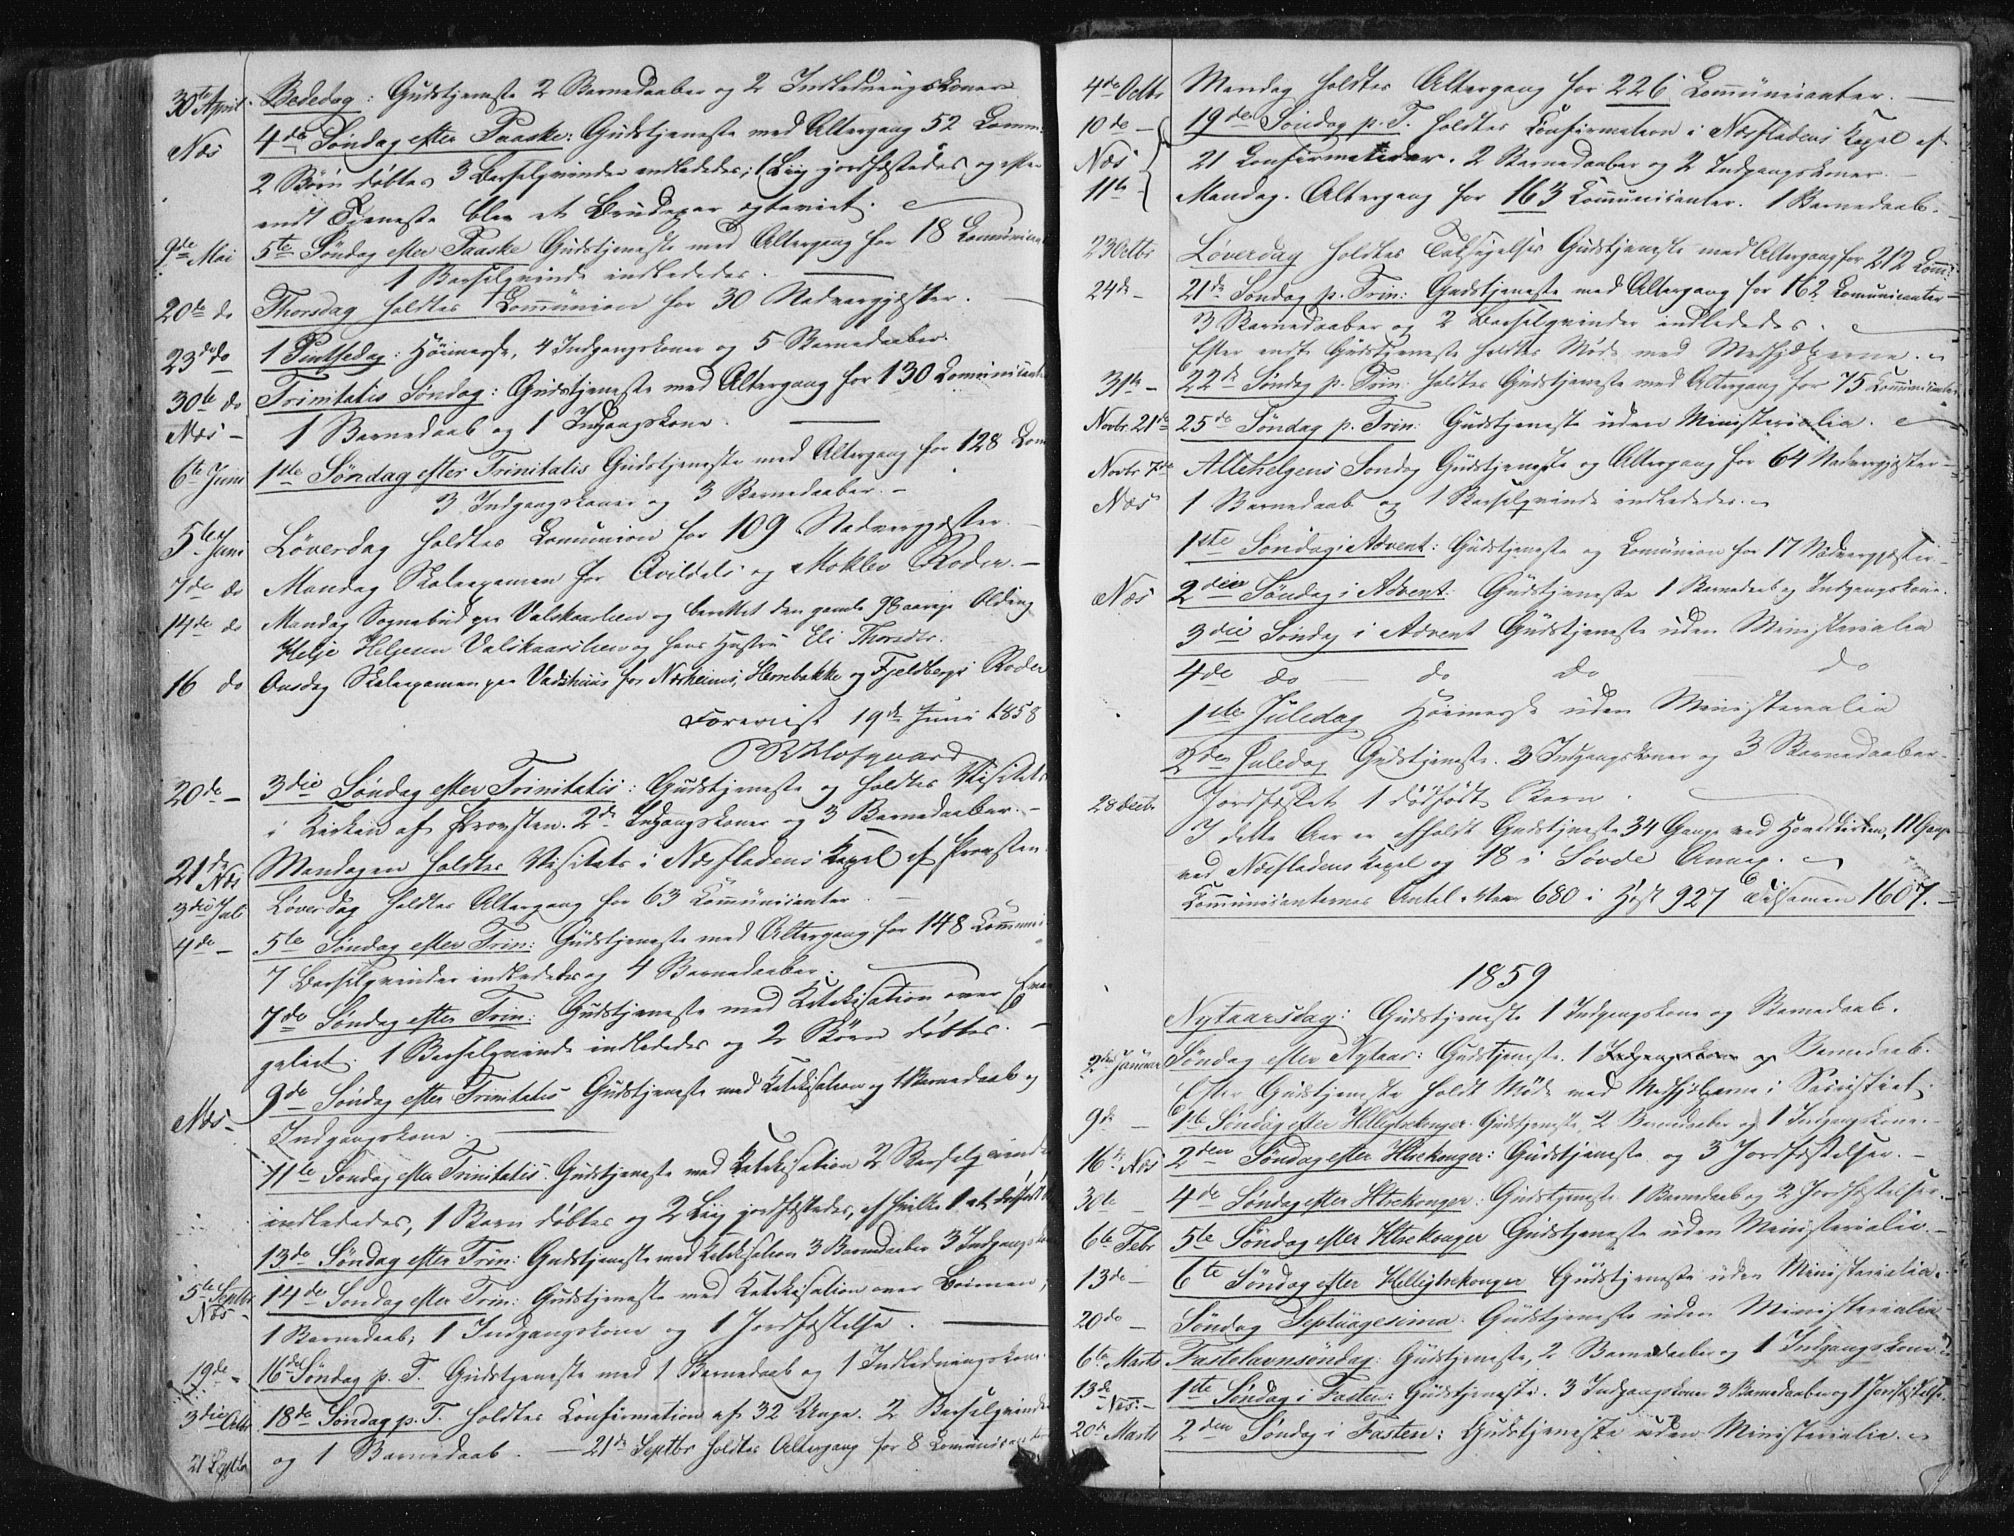 30te April. Bededag: Gudstjeneste 2 Barnedaaber og 2 Indledningskoner
Næs 4de Søndag efter Paaske: Gudstjeneste med Altergang 52 Comm:
2 Børn døbtes 3 Barselqvinder indlededes; 1 Liig jordfæstedes og efter
endt Tjeneste blev et Brudepar egteviet.
9de Mai 5te Søndag efter Paaske Gudstjeneste med Altergang for 18 Communican
1 Barselqvinde indlededes.
20de do Thorsdag holdtes Communion for 30 Nadvergjæster.
23de do 1 Pintsedag: Höimesse, 4 Indgangskoner og 5 Barnedaaber.
30te do Trinitatis Søndag: Gudstjeneste med Altergang for 130 Communicanter
Næs - 1 Barnedaab og 1 Indgangskone.
6te Juni 1ste Søndag efter Trinitatis Gudstjeneste med Altergang for 128 Com
3 Indgangskoner og 3 Barnedaaber. -
5te Juni Løverdag holdtes Comunion for 109 Nadvergjæster. -
7de do Mandag Skoleexamen for Qvildals og Moklev Roder. -
14de do Mandag Sognebud paa Valskaarlien og berettet den gamle 98 aarige Olding
Helje Heljesen Valskaarlien og hans Hustru Eli Thorsdtr.
16 do Onsdag Skoleexamen paa Vadshuus for Næsheims, Herrebakke og Fjeldbergs Roder
Foreviist 19de Juni 1858
Hofgaard
20de - 3die Søndag efter Trinitatis: Gudstjeneste og holdtes Visitats
i Kirken af Provsten. 2de Indgangskoner og 3 Barnedaaber. -
21de Næs Mandagen holdtes Visitats i Næsfladens Kapel af Provsten.
3die Juli Løverdag holdtes Altergang for 63 Communicanter. -
4de - 5te Søndag efter Trin: Gudstjeneste med Altergang for 148 Communi
7 Barselqvinder indlededes og 4 Barnedaaber.
7de Søndag efter Trin: Gudstjeneste med Katekisation over Evan
geliet. 1 Barselqvinde indlededes og 2 Børn døbtes. -
Næs - 9de Søndag efter Trinitatis Gudstjeneste med Katekisation og 1 Barnedaab og
Indgangskone.
11te Søndag efter Trinitatis Gudstjeneste med Katekisation 2 Barselqvinder
indlededes, 1 Barn døbtes og 2 Liig jordfæstedes, af hvilke 1 et dødfødt
13de Søndag efter Trin: Gudstjeneste med Katekisation 3 Barnedaaber 3 Indgangsk
5te Septbr Næs - 14de Søndag efter Trin: Gudstjeneste med Katekisation over
1 Barnedaab, 1 Indgangskone og 1 Jordfæstelse.
19de - 16de Søndag p. T. Gudstjeneste med 1 Barnedaab og 1 Indledningskone.
3die Octbr 18de Søndag p. T. holdtes Confirmation af 32 Unge. 2 Barselqvinder
21 Septbr og 1 Barnedaab. - 21de Septbr holdtes Altergang for 8 Communicanter
4de Octbr Mandag holdtes Altergang for 226 Communicanter. -
10de - 19de Søndag p. T. holdtes Confirmation i Næsfladens Kapel af
Næs 21 Confirmatider. 2 Barnedaaber og 2 Indgangskoner. -
11te Mandag. Altergang for 163 Communicanter. 1 Barnedaab. -
23 Octbr Løverdag holdtes Taksigelses Gudstjeneste med Altergang for 212 Comm:
24de - 21de Søndag p. Trin: Gudstjeneste med Altergang for 162 Comunicanter -
3 Barnedaaber og 2 Barselqvinder indlededes.
Efter endt Gudstjeneste holdtes Møde med Medhjælperne.
31te - 22de Søndag p. Trin: holdtes Gudstjeneste med Altergang for 75 Communicanter
Novbr 21de 25de Søndag p. Trin: Gudstjeneste uden Ministerialia.
Novbr 7de Allehelgens Søndag Gudstjeneste og Altergang for 64 Nadvergjæster -
Næs 1 Barnedaab og 1 Barselqvinde indlededes.
1ste Søndag i Advent: Gudstjeneste og Comunion for 17 Nadvergjæster.
Næs 2dien Søndag i Advent: Gudstjeneste 1 Barnedaab og Indgangskone.
3die Søndag i Advent Gudstjeneste uden Ministerialia
4de do - do do - do
1ste Juledag Höimesse uden Ministerialia
2den Juledag Gudstjeneste. 3 Indgangskoner og 3 Barnedaaber.
28 Decbr Jordfæstet 1 dødfødt Barn.
I dette Aar er afholdt Gudstjeneste 34 Gange ved Hovedkirken, 11 Gange
ved Næsfladens Kapel og 18 i Søvde Annex.
Communicanternes Antal i Vaar 680 i Høst 927 Tilsamen 1607. -
1859
Nytaarsdag: Gudstjeneste 1 Indgangskone og Barnedaab.
2den Januar Søndag efter Nytaar: Gudstjeneste. 1 Indgangskone og Barnedaab.
Efter Gudstjeneste holdt Møde med Medhjelperne i Sacristiet.
9de - 1ste Søndag efter Helligtrekonger. Gudstjeneste, 2 Barnedaaber og 1 Indgangskone. -
16de Næs 2den Søndag efter Htrekonger: Gudstjeneste og 3 Jordfæstelser. -
30te - 4de Søndag efter Htrekonger: Gudstjeneste 1 Barnedaab og 2 Jordfæstelser. -
6te Febr 5te Søndag efter Htrekonger Gudstjeneste uden Ministerialia. -
13de - 6te Søndag efter Helligtrekonger Gudstjeneste uden Ministerialia.
20de - Søndag Septuagesima. Gudstjeneste uden Ministerialia -
6te Marts Fastelavnsøndag: Gudstjeneste, 2 Barnedaaber og 1 Indgangskone.
13de Næs - 1ste Søndag i Fasten: Gudstjeneste. 3 Indgangskoner 3 Barnedaaber og 1 Jordfæstelse.
20de Marts 2den Søndag i Fasten: Gudstjeneste uden Ministerialia.